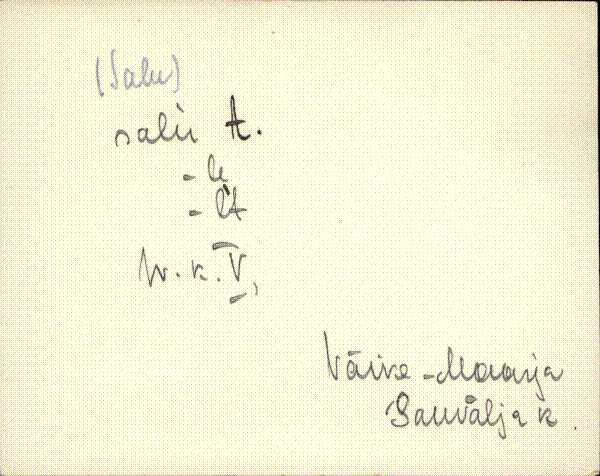 (Salu)
salu t.
- le
- lt
W. k. V,
Väike-Maarja
Sauvälja k.